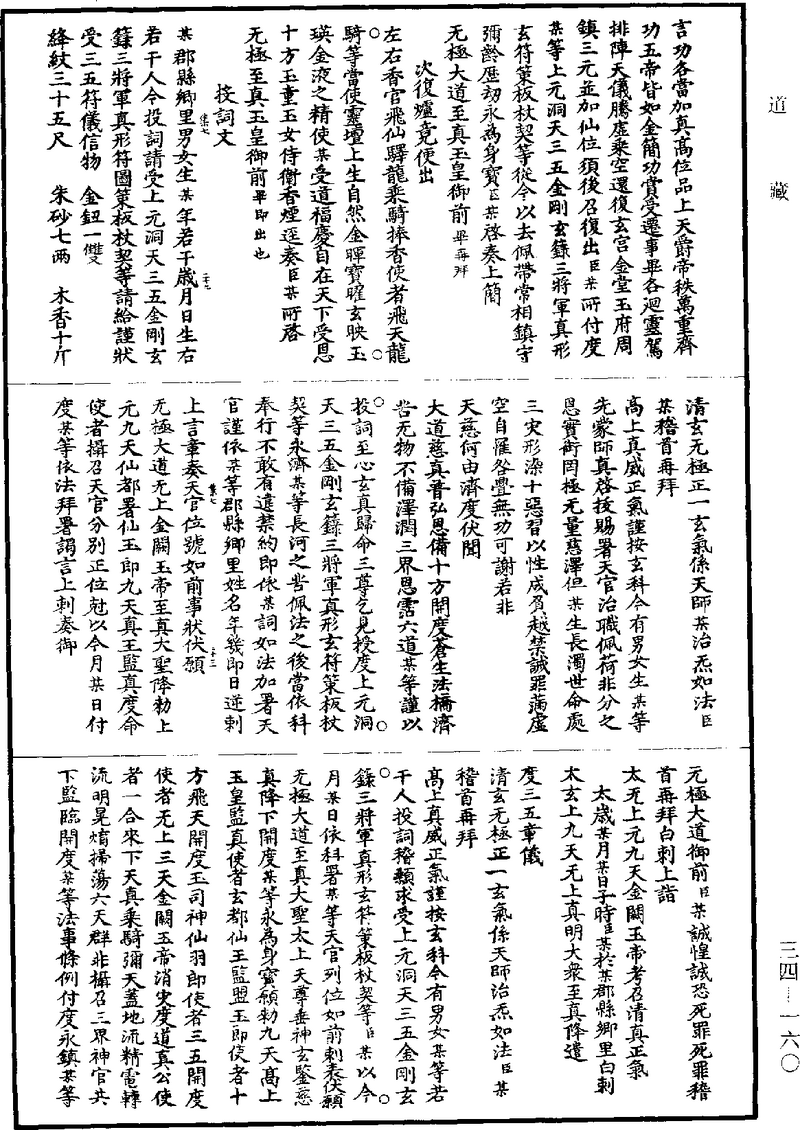 道藏
言功各當加真高位品上天爵帝秩萬重齊
功五帝皆如金簡功賞受遷事畢各迴靈駕
排陣天儀騰虛乘空還復玄宮金堂玉府周
鎮三元並加仙位須後召復出臣某所付度
某等上元洞天三五金剛玄籙三將軍真形
玄符策板杖契等從今以去佩帶常相鎮守
彌齡歷劫永為身寶臣某啓奏上簡
无極大道至真玉皇御前畢再拜
次復爐竟便出
左右香官飛仙驛龍乘騎捧香使者飛天龍
騎等當使靈壇上生自然金暉寶曜玄映玉
瑛金液之精使某受道福慶自在天下受恩
十方玉童玉女侍衛香煙逕奏臣某所啓
无極至真玉皇御前畢即出也
投詞文
某郡縣鄉里男女生某年若干歲月日生右
若干人今投詞請受上元洞天三五金剛玄
籙三將軍真形符圖策板杖契等請給謹狀
受三五符儀信物　金鈕一雙
絳紋三十五尺　朱砂七兩　木香十斤
清玄无極正一玄氣係天師某治炁如法臣
某稽首再拜
高上真威正氣謹按玄科今有男女生某等
先蒙師真啓技賜署天官治職佩荷非分之
恩實銜罔極无量慈澤但某生長濁世命處
三灾形染十惡習以性成負越禁誡罪滿虛
空自罹咎舋無功可謝若非
天慈何由濟度伏聞
大道慈真普弘恩備十方開度蒼生法橋濟
苦无物不備澤潤三界恩霑六道某等謹以
投詞至心玄真歸命三尊乞見授度上元洞
天三五金剛玄籙三將軍真形玄符策板杖
契等永濟某等長河之苦佩法之後當依科
奉行不敢有違禁約即依某詞如法加署天
官謹依某等郡縣鄉里姓名年幾即日逆刺
上言章奏天官位號如前事狀伏願
无極大道无上金闕玉帝至真大聖降勑上
元九天仙都署仙玉郎九天真王監真度命
使者攝召天官分別正位尅以今月某日付
度某等依法拜署謁言上刺奏御
元極大道御前臣某誠惶誠恐死罪死罪稽
首再拜白刺上詣
太无上元九天金闕玉帝考召清真正氣
太歲某月某日子時臣某於某郡縣鄉里白刺
太玄上九天无上真明大衆至真降遣
度三五章儀
清玄无極正一玄氣係天師治炁如法臣某
稽首再拜
高上真威正氣謹按玄科今有男女某等若
干人投詞稽顙求受上元洞天三五金剛玄
籙三將軍真形玄符策板杖契等臣某以今
月某日依科署某等天官列位如前刺表伏願
无極大道至真大聖太上天尊垂神玄鑒慈
真降下開度某等永為身寶願勑九天高上
玉皇監真使者玄都仙王監盟玉郎使者十
方飛天開度玉司神仙羽郎使者三五開度
使者无上三天金闕玉帝消灾度道真公使
者一合來下天真乘騎彌天蓋地流精電轉
流明晃煥掃蕩六天群非攝召三界神官共
下監臨開度某等法事條例付度永鎮某等
三四—一六〇